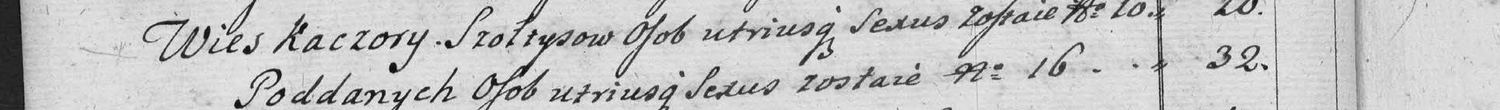 Wies Kaczory. Szołtysow Osob utriusq̃ Sexus zostaie No 10. „ 20.
Poddanych Osob utriusq̃ Sexus zostaie No 16 . . „ 32.